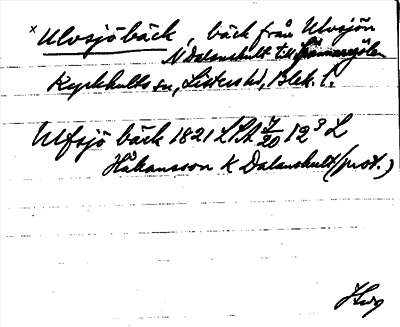 x Ulvsjöbäck, bäck från Ulvsjön
N Dalanshult till
Kyrkhults sn, Listers hd, Blek. l.
Ulfsjö bäck 1821 LSA 7/20 12³ L
Håkansson K Dalanshult (prot.)